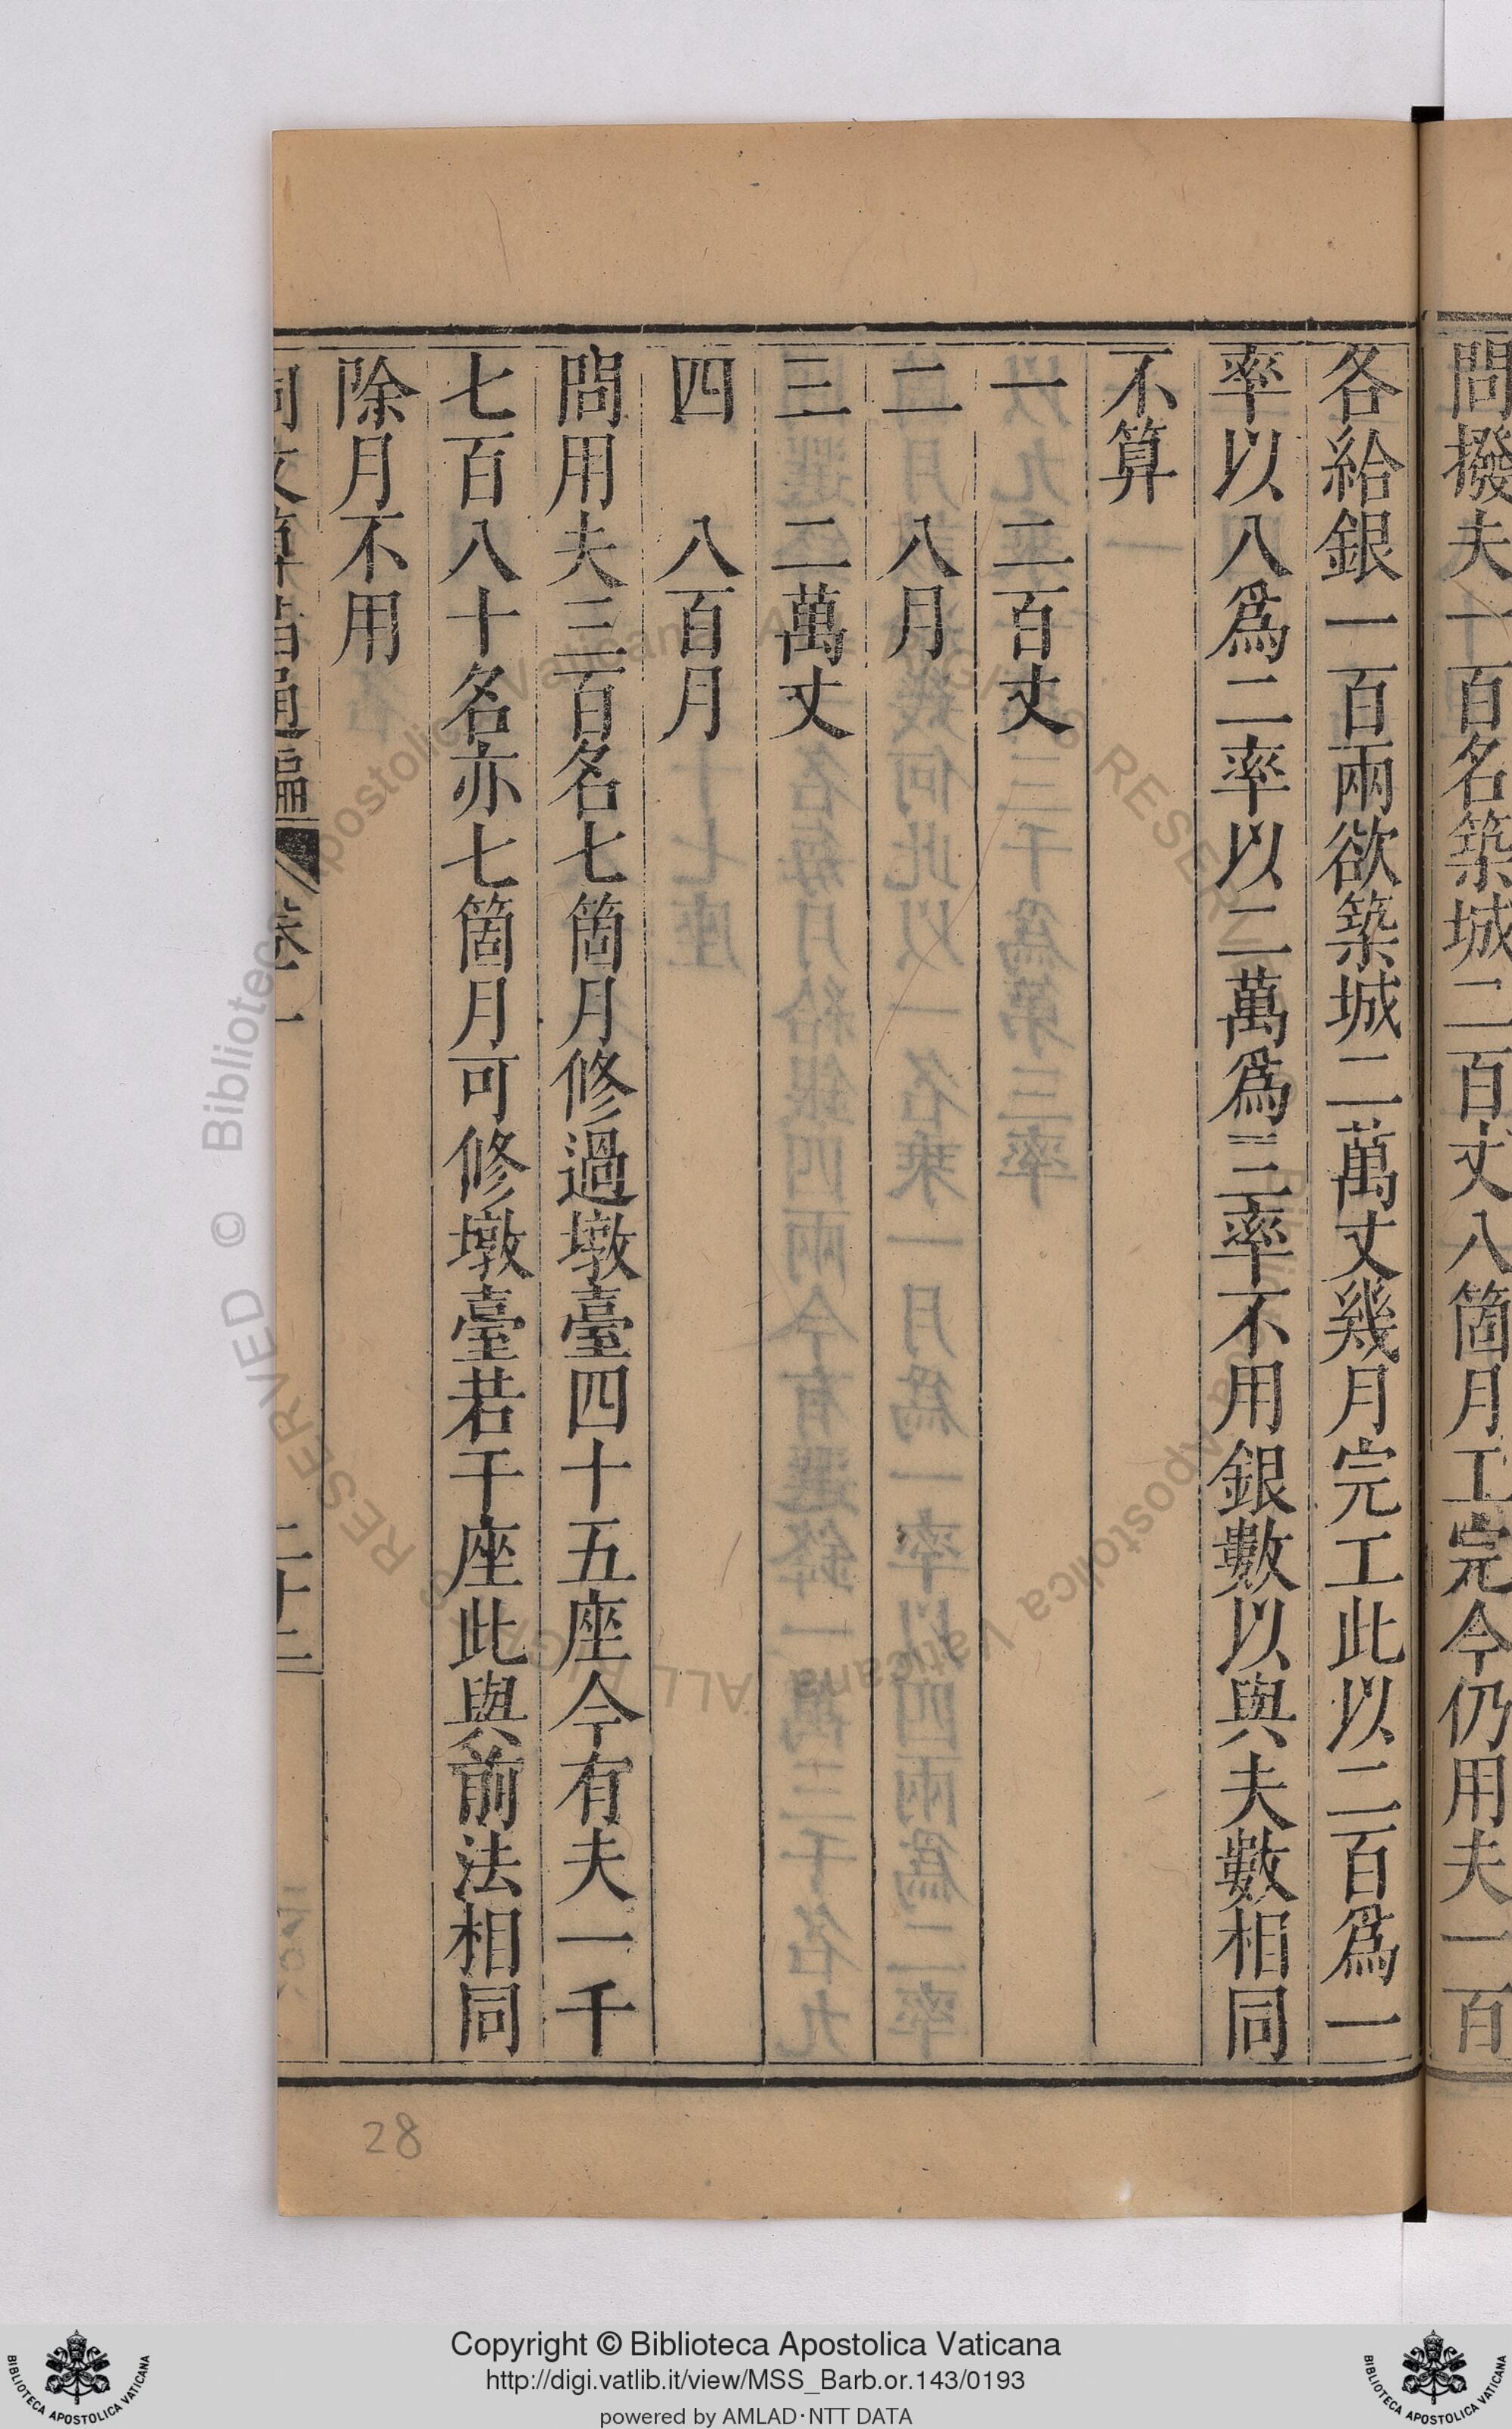 問撥夫一百名築城二百丈八箇月工完今仍用夫一百
各給銀一百兩欲築城二萬丈幾月完工此以二百爲一
率以八爲二率以二萬爲三率不用銀數以與夫數相同
不算
一　二百丈
二　八月
三　二萬丈
四　八百月
問用夫三百名七箇月修過墩臺四十五座今有夫一千
七百八十名亦七箇月可修墩臺若干座此與前法相同
除月不用
同文算指通編　卷一　二十三
28
© Biblioteca Apostolica Vaticana ALL RIGHTS RESERVED
Copyright © Biblioteca Apostolica Vaticana
http://digi.vatlib.it/view/MSS_Barb.or.143/0193
powered by AMLAD·NTT DATA
BIBLIOTECA APOSTOLICA VATICANA
BIBLIOTECA APOSTOLICA VATICANA